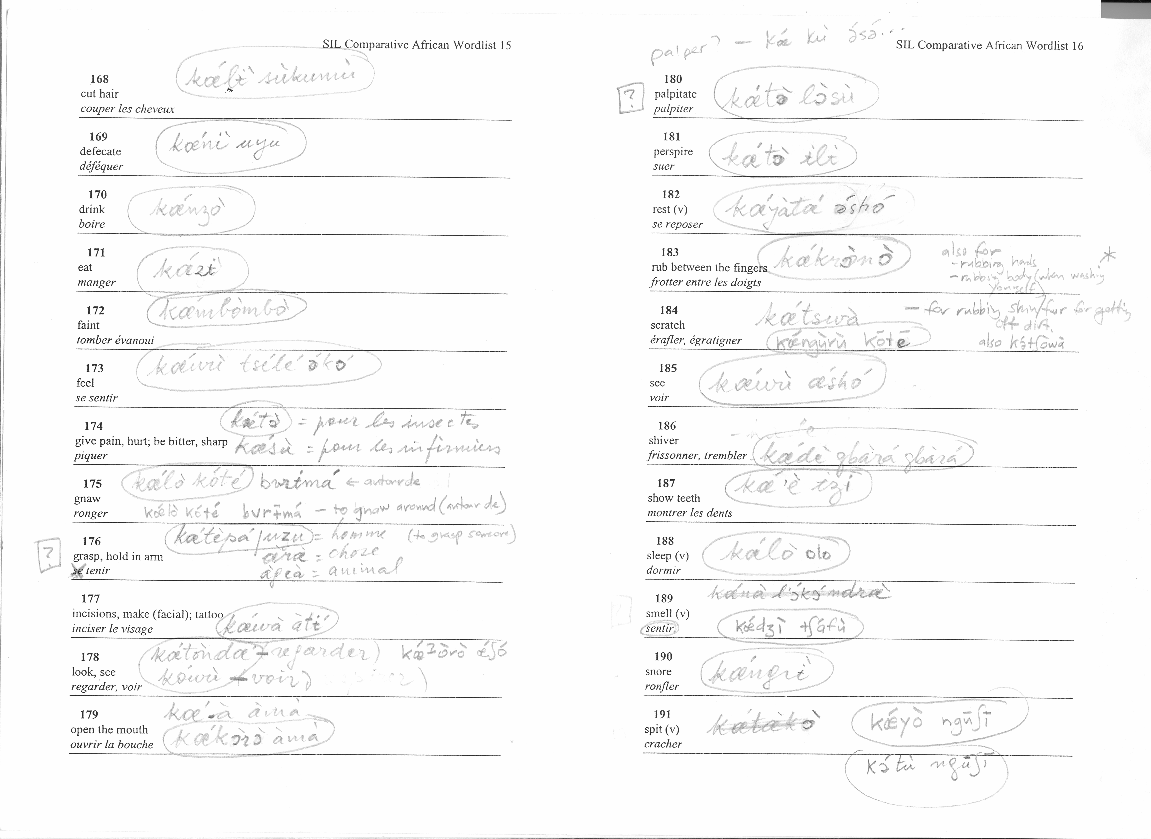 SIL Comparative African Wordlist 15
168
cut hair
couper les cheveux
kœ́lɨ̀ sùkumù
169
defecate
déféquer
kœ́nì uyu
170
drink
boire
kœ́nzò
171
eat
manger
kœ́zɨ̀
172
faint
tomber évanoui
kœ́mbòmbò
173
feel
se sentir
kœ́wù tsílé ə́kó
174
give pain, hurt; be bitter, sharp
piquer
kœ́tò = pour les insectes
kœ́sù = pour les infirmiers
175
gnaw
ronger
kœ́lò kóté bvɨtmá ← autour de
kœ́lò kóté bvrɨmá — to gnaw around (autour de)
176
grasp, hold in arm
se tenir
?
= homme (to grasp someone)
= chose
= animal
177
incisions, make (facial); tattoo
inciser le visage
kœ́wà átɨ́
178
look, see
regarder, voir
kœ́tòndá - regarder)
voir)
179
open the mouth
ouvrir la bouche
àmà
kœ́kɔ̀rɔ̀ àmà
SIL Comparative African Wordlist 16
palper ? —
180
palpitate
palpiter
?
kœ́tò lòsù
181
perspire
suer
kœ́tò ɨlɨ
182
rest (v)
se reposer
kœ́yàtá ə́shó
183
rub between the fingers
frotter entre les doigts
kœ́krɔ̀nɔ̀
also for
- rubbing hands
- rubbing body (when washing yourself)
*
184
scratch
érafler, égratigner
kœ́tswà
— for rubbing skin/fur for getting
off dirt.
kœ́ngùrù kóté
also
185
see
voir
kœ́wù œ́shó
186
shiver
frissonner, trembler
kœ́dè gbàrá gbàrá
187
show teeth
montrer les dents
kœ́'è tzɨ́
188
sleep (v)
dormir
kœ́lò olo
189
smell (v)
sentir
kœ́dʒɨ̀ tʃáfù
190
snore
ronfler
kœ́ngrɨ̀
191
spit (v)
cracher
kœ́tàkò
kœ́yò ngūʃī
kɔ́tù ngūʃī